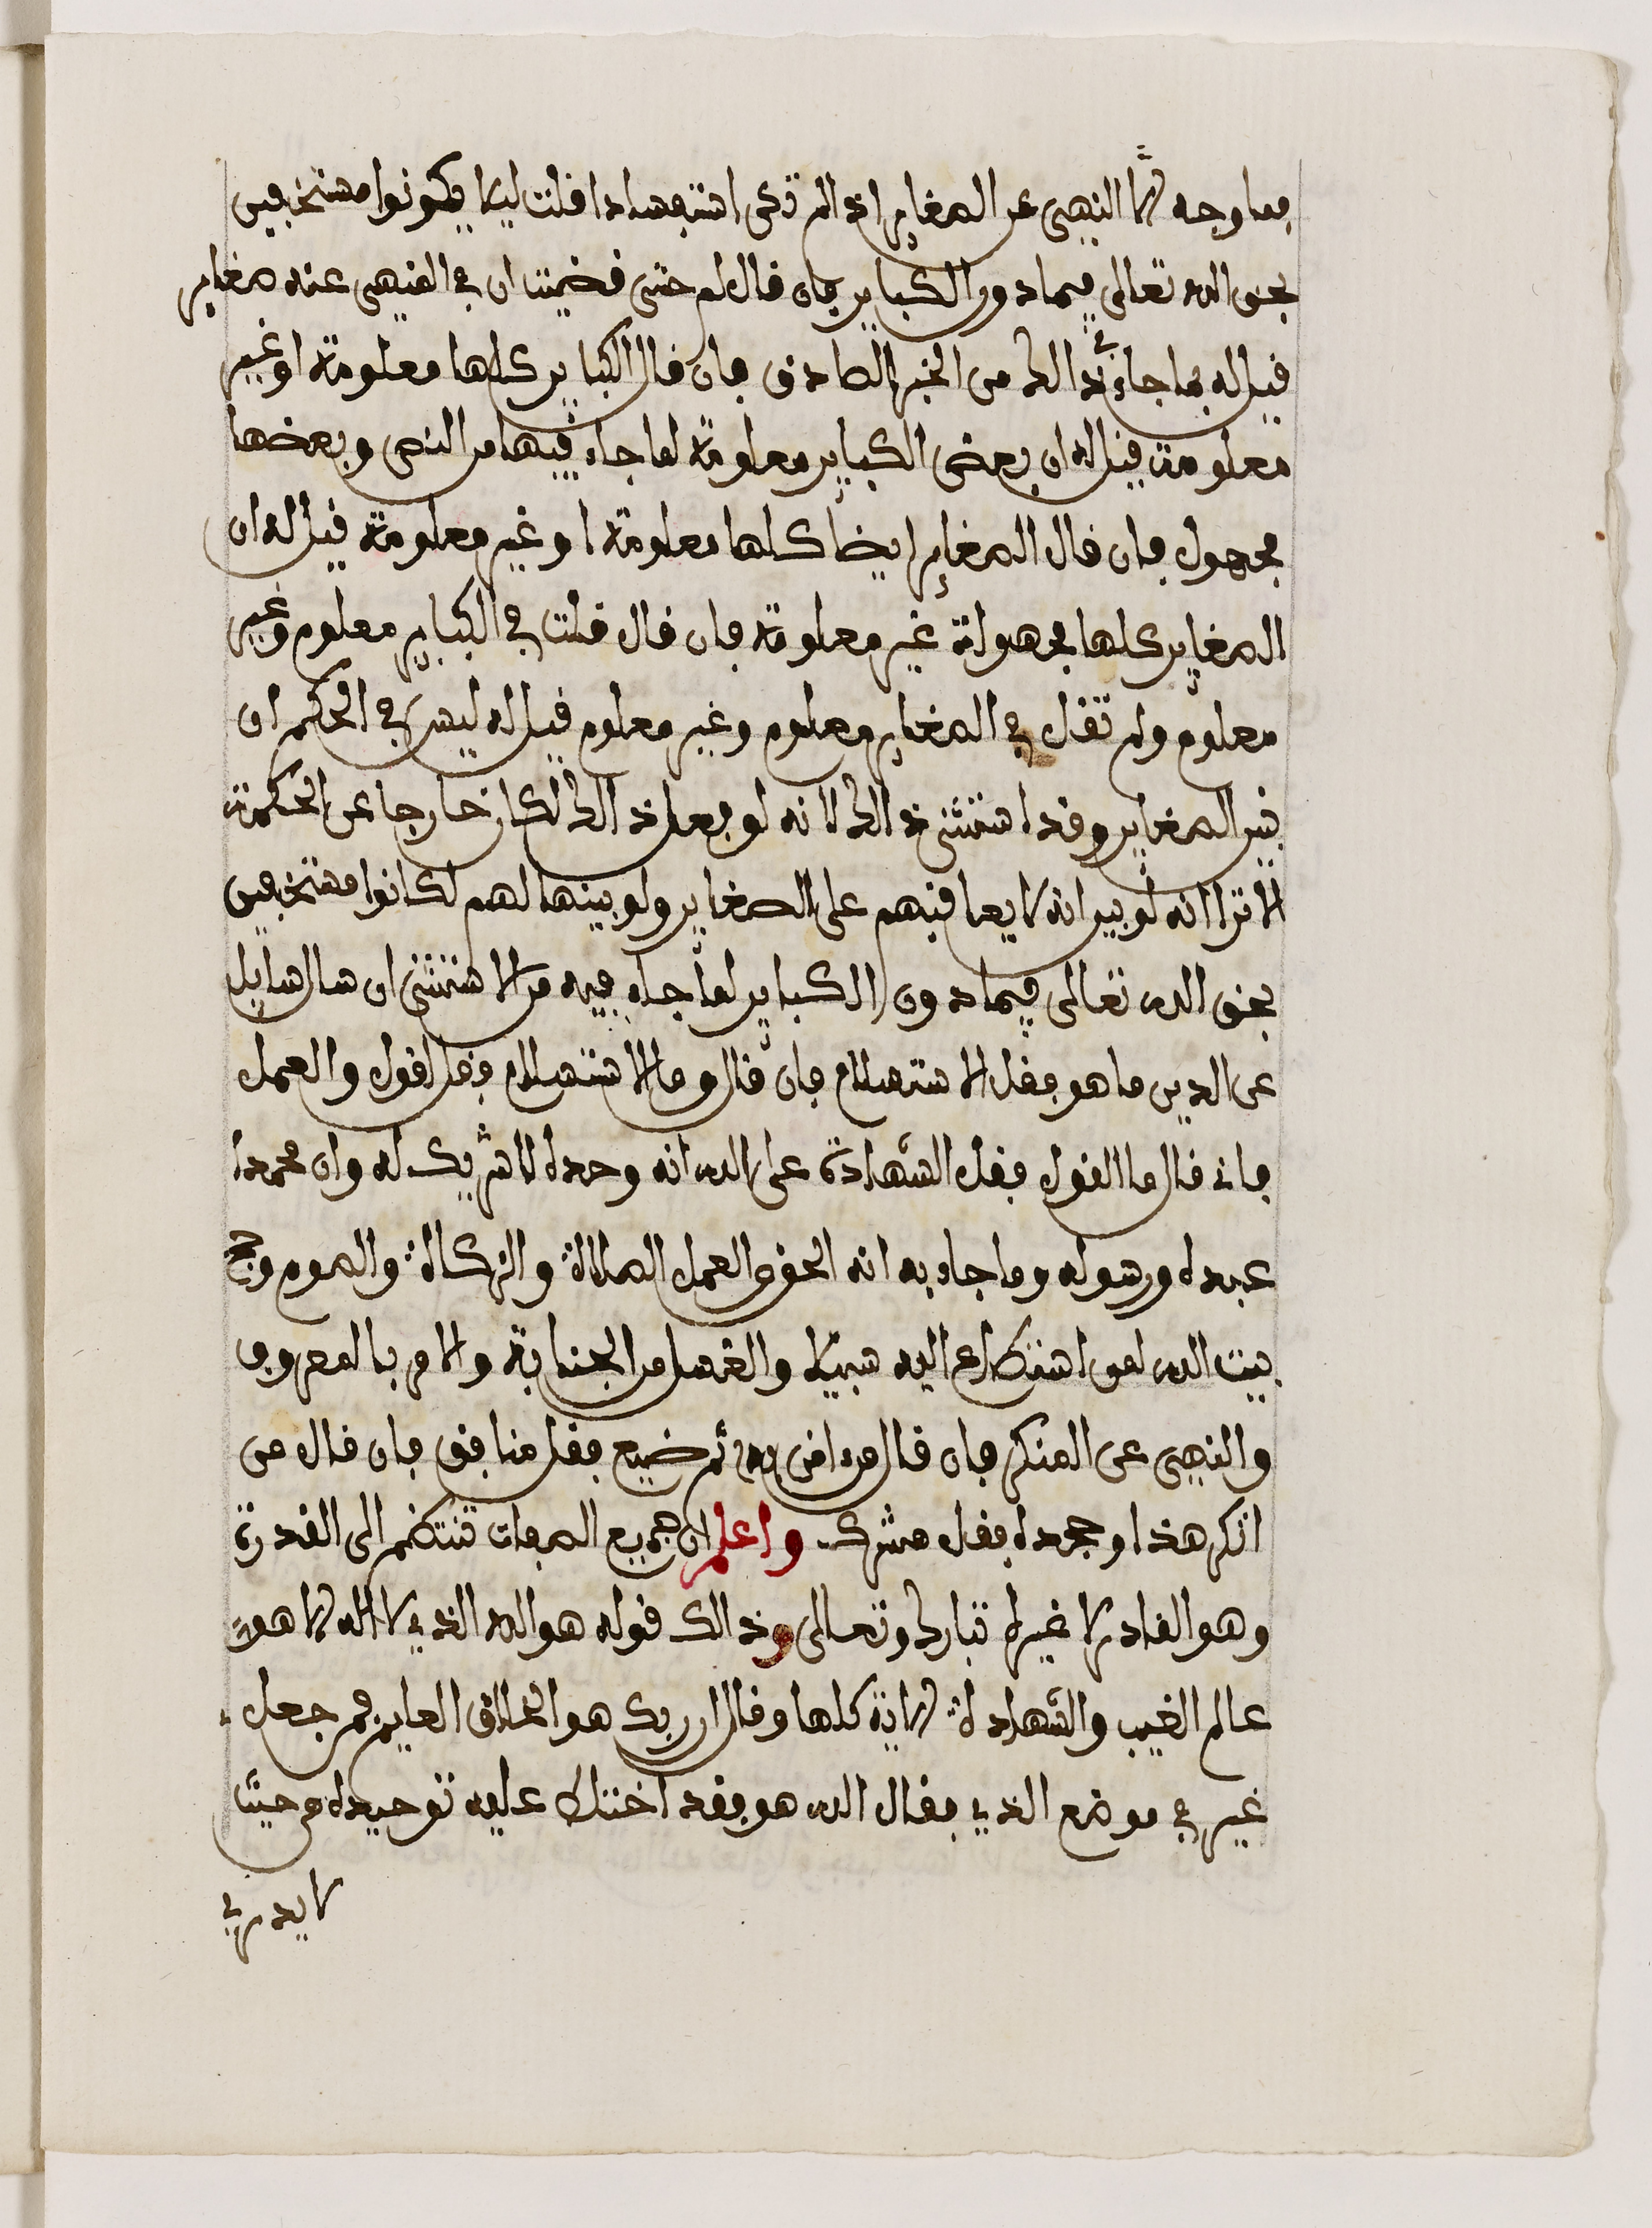 فما وجه النهي عن الصغاير اذ لم تكن استفسادا قلت ليلا يكونوا مستخفين
بحق الله تعالى فيما دون الكباير فان قال لم حتى قضيت ان في المنهي عنه صغاير
قيل له بما جاء في ذالك من الخبر الصادق فان قال الكباير كلها معلومة او غير
معلومة قيل له ان بعض الكباير معلومة لما جاء فيها من النص وبعضها
مجهول فان قال الصغاير ايضا كلها معلومة او غير معلومة قيل له ان
الصغاير كلها مجهولة غير معلومة فان قال قلت في الكباير معلوم وغير
معلوم ولم تقل في الصغاير معلوم وغير معلوم قيل له ليس في الحكم ان
تبين الصغاير وقد استثنى ذالك لانه لو فعل ذالك لكان خارجا عن الحكمة
الا ترا انه لو بين انه لا يعاقبهم على الصغاير ولو بينها لهم لكانوا مستخفين
بحق الله تعالى فيما دون الكباير لما جاء فيه من الاستثنى ان سال سايل
عن الدين ما هو فقل الاستسلام فان قال وما الاستسلام فقل القول والعمل
فان قال ما القول فقل الشهادة على الله انه وحده لا شريك له وان محمدا
عبده ورسوله وما جاء به انه الحق والعمل الصلاة والزكاة والصوم وحج
بيت الله لمن استطاع اليه سبيلا والغسل من الجنابة والامر بالمعروف
والنهي عن المنكر فان قال من امن به ثم ضيع فقل منافق فان قال من
انكر هذا وجحده فقل مشرك واعلم ان جميع الصفات تنتظم الى القدرة
وهو القادر لا غيره تبارك وتعالى وذالك قوله هو الله الذي لا اله الا هو
عالم الغيب والشهادة الاية كلها وقال ان ربك هو الخلاق العليم فمن جعل
غير في موضع الذي فقال الله هو فقد اختلط عليه توحيده من حيث
لا يدري